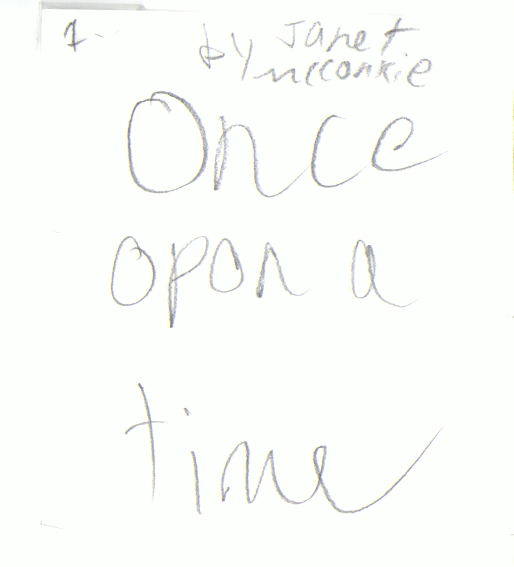 1-
by Janet
McConkie
Once
opon a
time